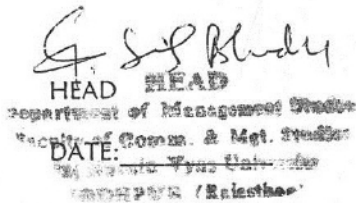 HEAD HEAD
Department of Management Studies
Faculty of Comm. & Mgt. Studies
DATE:
Vyas University
JODHPUR (Rajasthan)